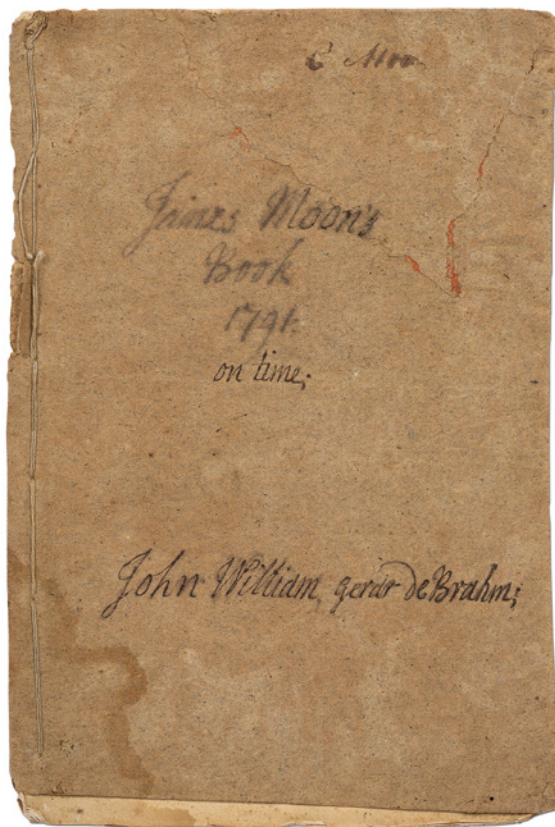 James Moon's
Book
1791.
on time;
John William, gerar de Brahm;